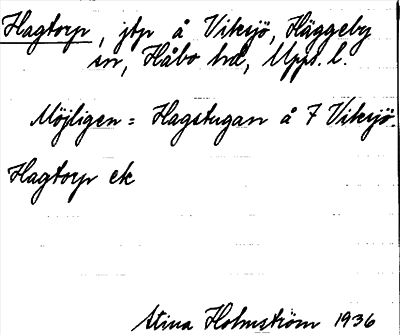 Hagtorp, jtp å Viksjö, Häggeby
sn, Håbo hd, Upps. l.
Möjligen = Hagstugan å 7 Viksjö.
Hagtorp ek
Stina Holmström 1936